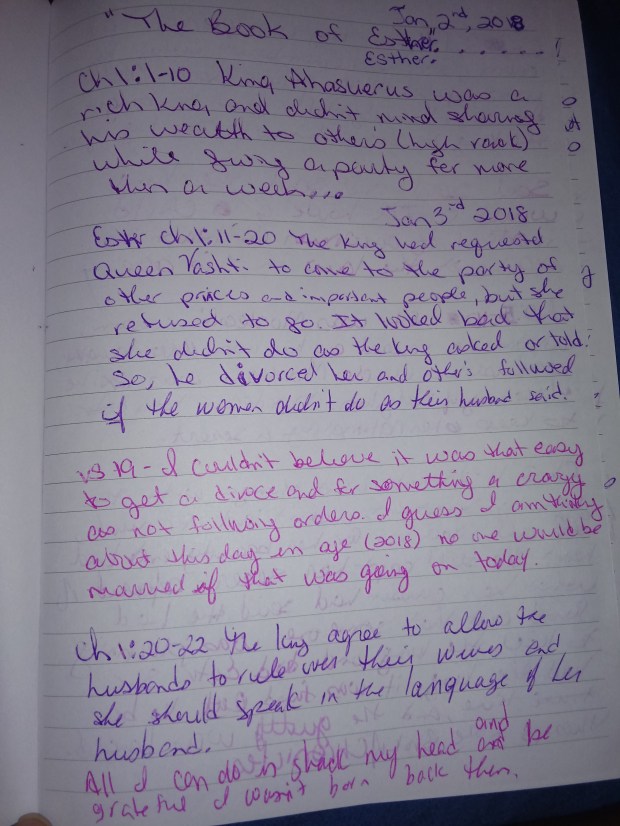 Jan, 2nd, 2018
"The Book of Esther" . . . . . . !
Esther.
Ch 1:1-10 King Ahasuerus was a
rich King and didn't mind sharing
his wealth to others (high rank)
while giving a party for more
then a week...
Jan 3rd 2018
Ester Ch 1:11-20 The King had requestd
Queen Vashti to come to the party of
other princes and important people, but she
refused to go. It looked bad that
she didn't do as the king asked or told.
So, he divorced her and other's followed
if the women didn't do as their husband said.
vs 19 - I couldn't believe it was that easy
to get a divoce and for something a crazy
as not follwing orders. I guess I am thinking
about this day in age (2018) no one would be
married if that was going on today.
Ch 1:20-22 The King agree to allow the
husbands to rule over their wives and
she should speak in the language of her
husband.
All I can do is shack my head and be
grateful I wasn't born back then.